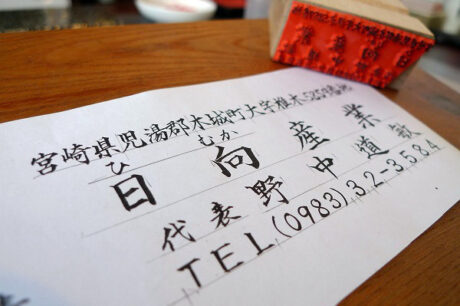 宮崎県児湯郡木城町大字椎木5850番地
ひむか
日向産業
代表野中道敏
TEL(0983)32-3584